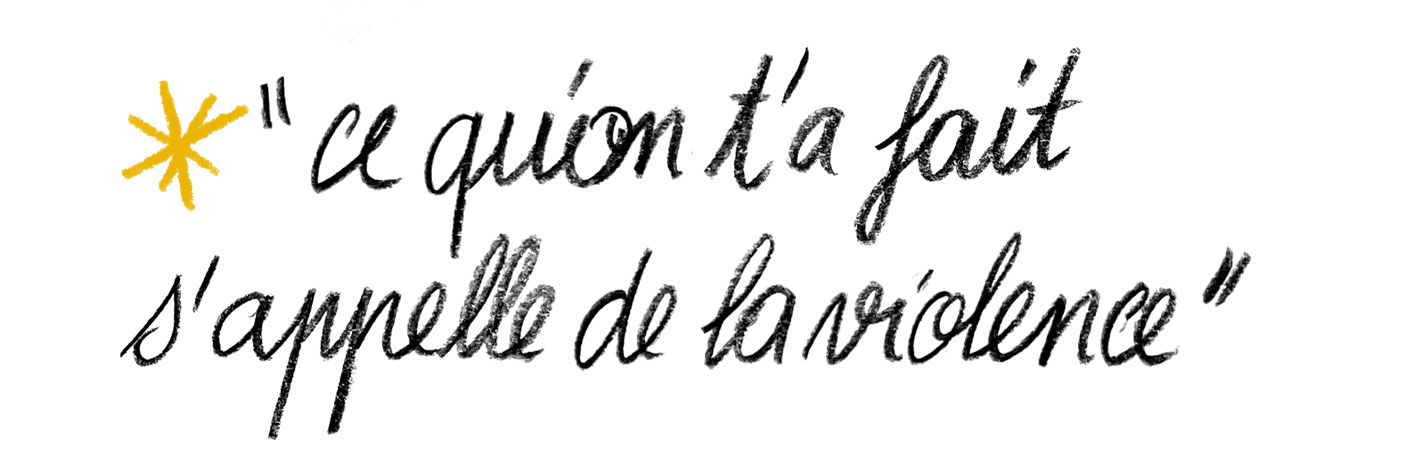 *"ce qu'on t'a fait
s'appelle de la violence"